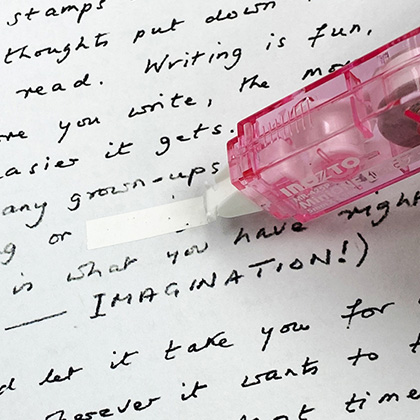 stamps
thoughts put down
read. Writing is fun,
you write, the
easier it gets.
any grown-ups
or
is what you have right
— IMAGINATION!)
let it take you for
wherever it wants to
times